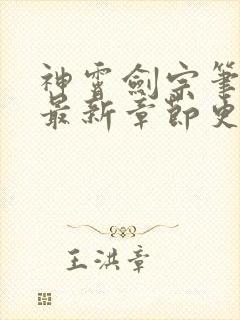 神霄劍宗筆
最新章節史
王洪章